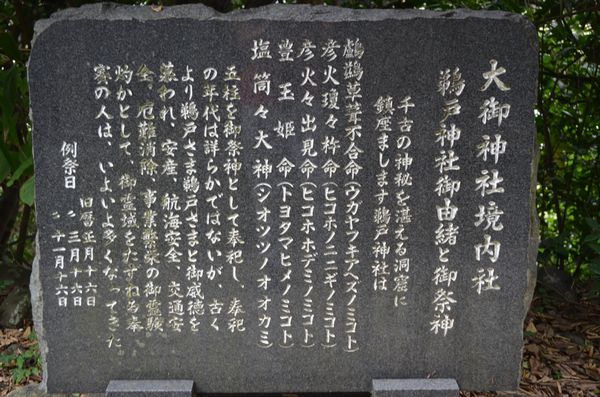 大御神社境内社
鵜戸神社御由緒と御祭神
千古の神秘を湛える洞窟に
鎮座まします鵜戸神社は
鸕鶿草葺不合命(ウガヤフキアヘズノミコト)
彦火瓊々杵命(ヒコホノニニギノミコト)
彦火々出見命(ヒコホホデミノミコト)
豊玉姫命(トヨタマヒメノミコト)
塩筒々大神(シオツツノオオカミ)
五柱を御祭神として奉祀し、奉祀
の年代は詳らかではないが、古く
より鵜戸さま鵜戸さまと御威徳を
慕われ、安産、航海安全、交通安
全、厄難消除、事業繁栄の御霊験
灼かとして、御霊域をたずねる参
賽の人は、いよいよ多くなってきた。
例祭日
旧暦正月十六日
〃三月十六日
〃十一月十六日